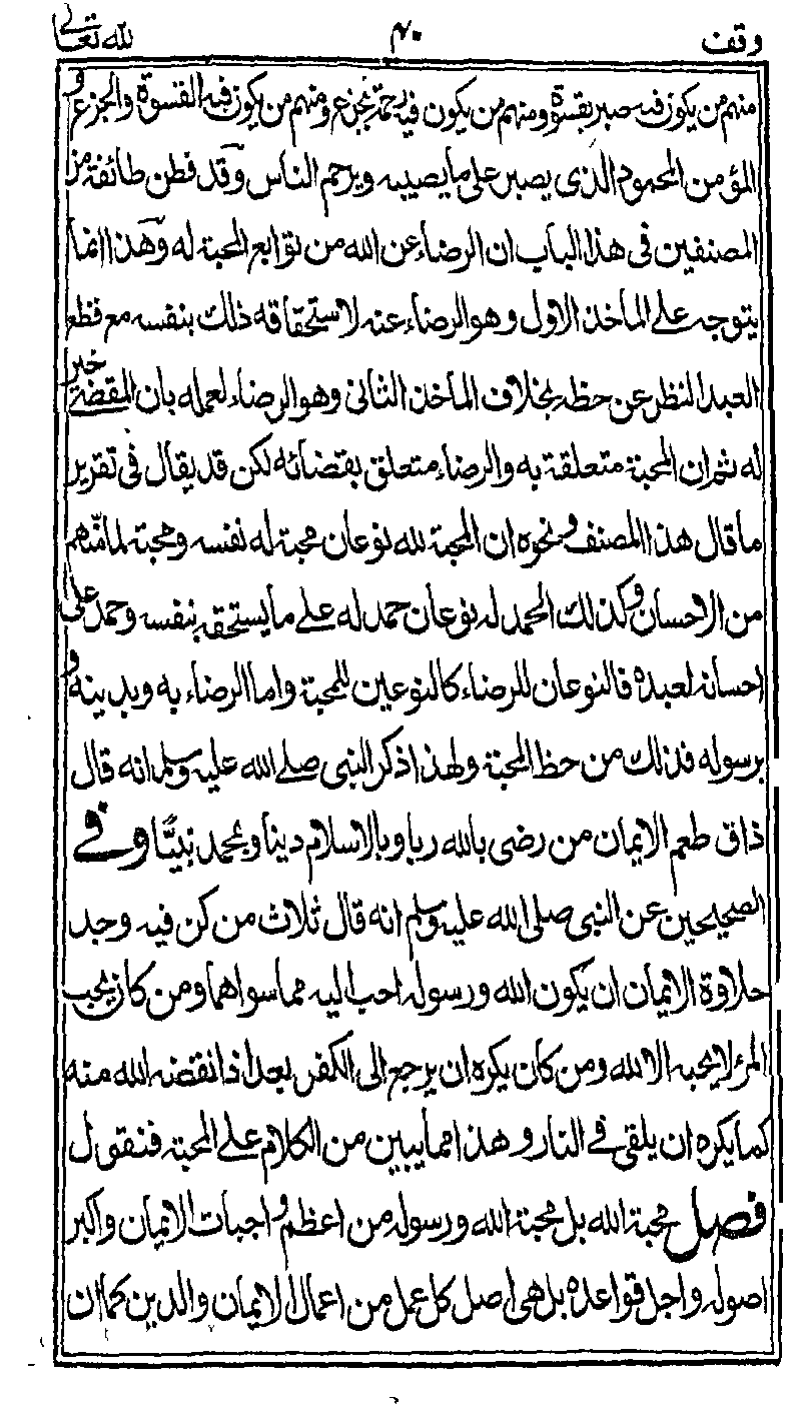 وقف ٤٠ لله تعالى
منهم من يكون فيه صبر بقسوة ومنهم من يكون فيه رحمة بجزع ومنهم من يكون فيه القسوة والجزع و
المؤمن المحمود الذى يصبر على ما يصيبه ويرحم الناس وقد فطن طائفة من
المصنفين فى هذا الباب ان الرضاء عن الله من توابع المحبة له وهذا انما
يتوجه على الماخذ الاول وهو الرضاء عنه لاستحقاقه ذلك بنفسه مع قطع
العبد النظر عن حظه بخلاف الماخذ الثانى وهو الرضاء لعمله بان المقضى خير
له ثم ان المحبة متعلقة به والرضاء متعلق بقضائه لكن قد يقال فى تقرير
ما قال هذا المصنف ونحوه ان المحبة لله نوعان محبة له نفسه ومحبة لما منّهم
من الاحسان وكذلك الحمد له نوعان حمد له على ما يستحقه بنفسه وحمد على
احسانه لعبده فالنوعان للرضاء كالنوعين للمحبة واما الرضاء به وبدينه و
برسوله فذلك من حظ المحبة ولهذا ذكر النبى صلى الله عليه وسلم انه قال
ذاق طعم الايمان من رضى بالله ربا وبالاسلام دينا وبمحمد نبيًّا وفى
الصحيحين عن النبى صلى الله عليه وسلم انه قال ثلاث من كن فيه وجد
حلاوة الايمان ان يكون الله ورسوله احب اليه مما سواهما ومن كان يحب
المرء لا يحبه الا لله ومن كان يكره ان يرجع الى الكفر بعد اذ انقضه الله منه
كما يكره ان يلقى فى النار وهذا مما يبين من الكلام على المحبة فنقول
فصل محبة الله بل محبة الله ورسوله من اعظم واجبات الايمان واكبر
اصوله واجل قواعده بل هى اصل كل عمل من اعمال الايمان والدين كما ان